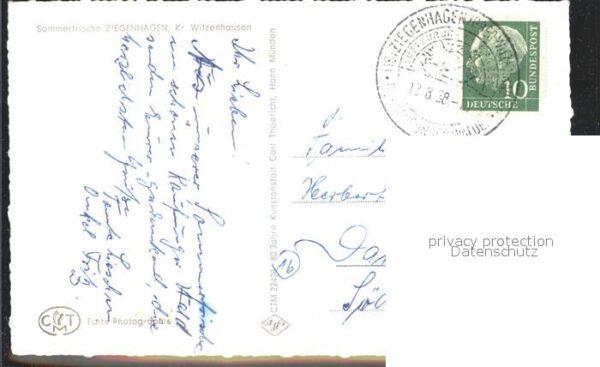 Sommerfrische ZIEGENHAGEN, Kr. Witzenhausen
Ihr Lieben!
Aus unserer Sommerfrische
im schönen Kaufunger Wald
senden Euer gedenkend, die
herzlichsten Grüße
Tante Lieschen
Onkel Fritz
Echte Photographie
CTM
CTM 2240 80 Jahre Kunstanstalt Carl Thoericht, Hann. Münden
16
ZIEGENHAGEN
12.8.58
10
DEUTSCHE
BUNDESPOST
Famil
Herber
privacy protection
Datenschutz